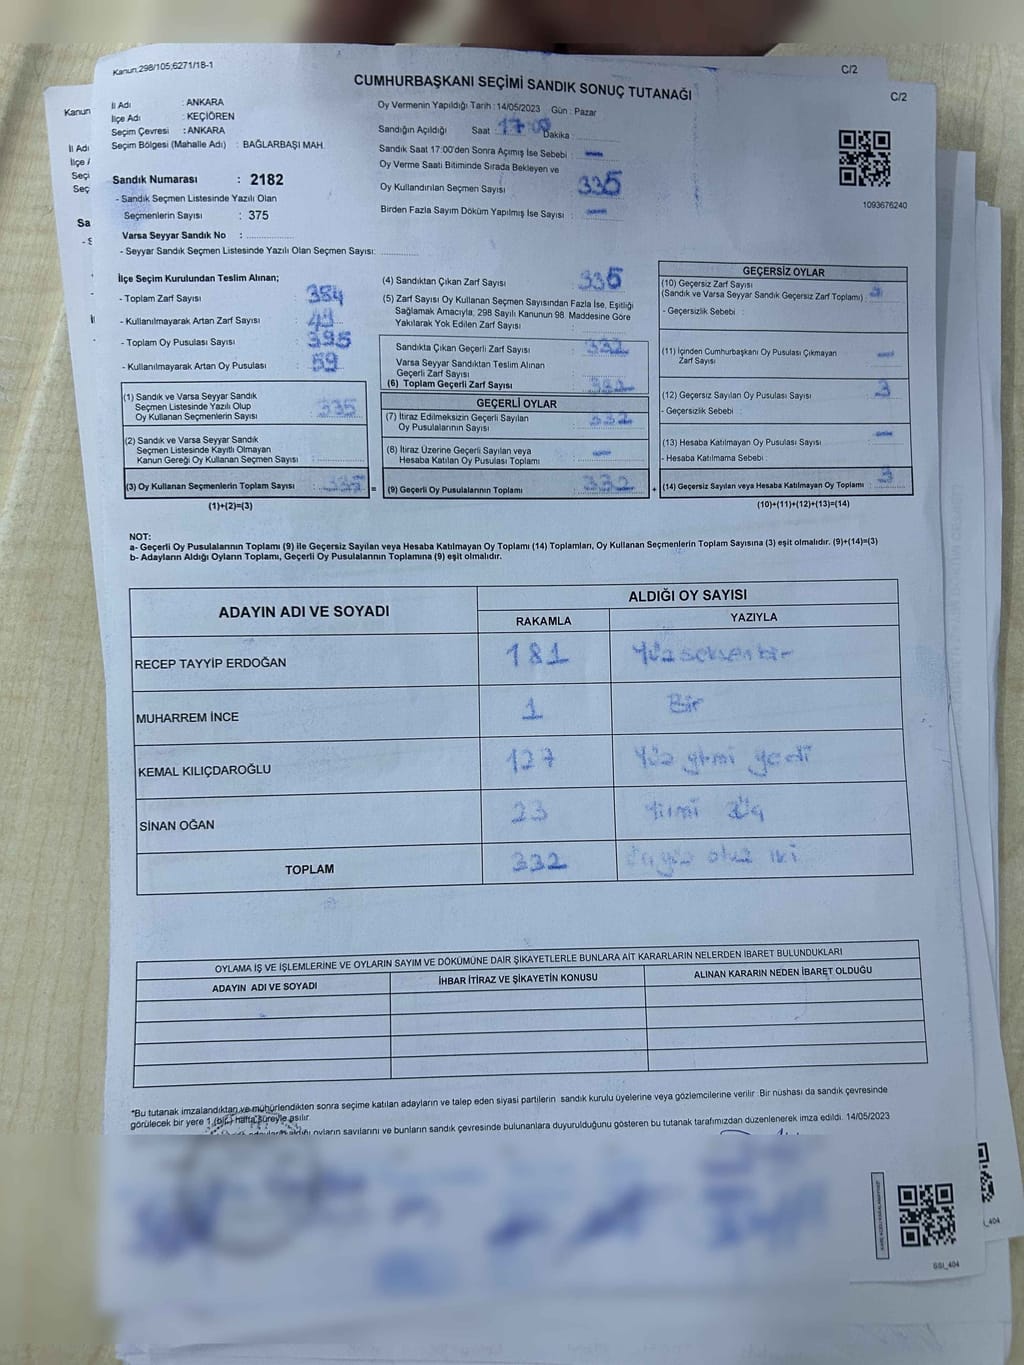 Kanun;298/105;6271/18-1
C/2
CUMHURBAŞKANI SEÇİMİ SANDIK SONUÇ TUTANAĞI
C/2
Kanun
İl Adı : ANKARA
İlçe Adı : KEÇİÖREN
Seçim Çevresi : ANKARA
Seçim Bölgesi (Mahalle Adı) : BAĞLARBAŞI MAH.
Sandık Numarası : 2182
- Sandık Seçmen Listesinde Yazılı Olan
Seçmenlerin Sayısı : 375
Varsa Seyyar Sandık No :
- Seyyar Sandık Seçmen Listesinde Yazılı Olan Seçmen Sayısı:
Oy Vermenin Yapıldığı Tarih : 14/05/2023 Gün : Pazar
Sandığın Açıldığı Saat : 17:00 Dakika :
Sandık Saat 17:00'den Sonra Açılmış İse Sebebi :
Oy Verme Saati Bitiminde Sırada Bekleyen ve
Oy Kullandırılan Seçmen Sayısı : 335
Birden Fazla Sayım Döküm Yapılmış İse Sayısı :
1093676240
İlçe Seçim Kurulundan Teslim Alınan;
- Toplam Zarf Sayısı : 384
- Kullanılmayarak Artan Zarf Sayısı : 49
- Toplam Oy Pusulası Sayısı : 395
- Kullanılmayarak Artan Oy Pusulası : 59
(1) Sandık ve Varsa Seyyar Sandık
Seçmen Listesinde Yazılı Olup
Oy Kullanan Seçmenlerin Sayısı : 335
(2) Sandık ve Varsa Seyyar Sandık
Seçmen Listesinde Kayıtlı Olmayan
Kanun Gereği Oy Kullanan Seçmen Sayısı :
(3) Oy Kullanan Seçmenlerin Toplam Sayısı : 335 =
(1)+(2)=(3)
(4) Sandıktan Çıkan Zarf Sayısı : 335
(5) Zarf Sayısı Oy Kullanan Seçmen Sayısından Fazla İse, Eşitliği
Sağlamak Amacıyla, 298 Sayılı Kanunun 98. Maddesine Göre
Yakılarak Yok Edilen Zarf Sayısı :
Sandıkta Çıkan Geçerli Zarf Sayısı : 332
Varsa Seyyar Sandıktan Teslim Alınan
Geçerli Zarf Sayısı :
(6) Toplam Geçerli Zarf Sayısı : 332
GEÇERLİ OYLAR
(7) İtiraz Edilmeksizin Geçerli Sayılan
Oy Pusulalarının Sayısı : 332
(8) İtiraz Üzerine Geçerli Sayılan veya
Hesaba Katılan Oy Pusulası Toplamı :
(9) Geçerli Oy Pusulalarının Toplamı : 332 +
GEÇERSİZ OYLAR
(10) Geçersiz Zarf Sayısı
(Sandık ve Varsa Seyyar Sandık Geçersiz Zarf Toplamı) :
- Geçersizlik Sebebi :
(11) İçinden Cumhurbaşkanı Oy Pusulası Çıkmayan
Zarf Sayısı :
(12) Geçersiz Sayılan Oy Pusulası Sayısı : 3
- Geçersizlik Sebebi :
(13) Hesaba Katılmayan Oy Pusulası Sayısı :
- Hesaba Katılmama Sebebi :
(14) Geçersiz Sayılan veya Hesaba Katılmayan Oy Toplamı : 3
(10)+(11)+(12)+(13)=(14)
NOT:
a- Geçerli Oy Pusulalarının Toplamı (9) ile Geçersiz Sayılan veya Hesaba Katılmayan Oy Toplamı (14) Toplamları, Oy Kullanan Seçmenlerin Toplam Sayısına (3) eşit olmalıdır. (9)+(14)=(3)
b- Adayların Aldığı Oyların Toplamı, Geçerli Oy Pusulalarının Toplamına (9) eşit olmalıdır.
ADAYIN ADI VE SOYADI
ALDIĞI OY SAYISI
RAKAMLA YAZIYLA
RECEP TAYYİP ERDOĞAN 181 Yüzseksenbir
MUHARREM İNCE 1 Bir
KEMAL KILIÇDAROĞLU 127 Yüz yirmi yedi
SİNAN OĞAN 23 Yirmi Üç
TOPLAM 332 Üçyüz otuz iki
OYLAMA İŞ VE İŞLEMLERİNE VE OYLARIN SAYIM VE DÖKÜMÜNE DAİR ŞİKAYETLERLE BUNLARA AİT KARARLARIN NELERDEN İBARET BULUNDUKLARI
ADAYIN ADI VE SOYADI İHBAR İTİRAZ VE ŞİKAYETİN KONUSU ALINAN KARARIN NEDEN İBARET OLDUĞU
*Bu tutanak imzalandıktan ve mühürlendikten sonra seçime katılan adayların ve talep eden siyasi partilerin sandık kurulu üyelerine veya gözlemcilerine verilir. Bir nüshası da sandık çevresinde
görülecek bir yere 1 (bir) hafta süreyle asılır.
oyların sayılarını ve bunların sandık çevresinde bulunanlara duyurulduğunu gösteren bu tutanak tarafımızdan düzenlenerek imza edildi. 14/05/2023
GSI_404